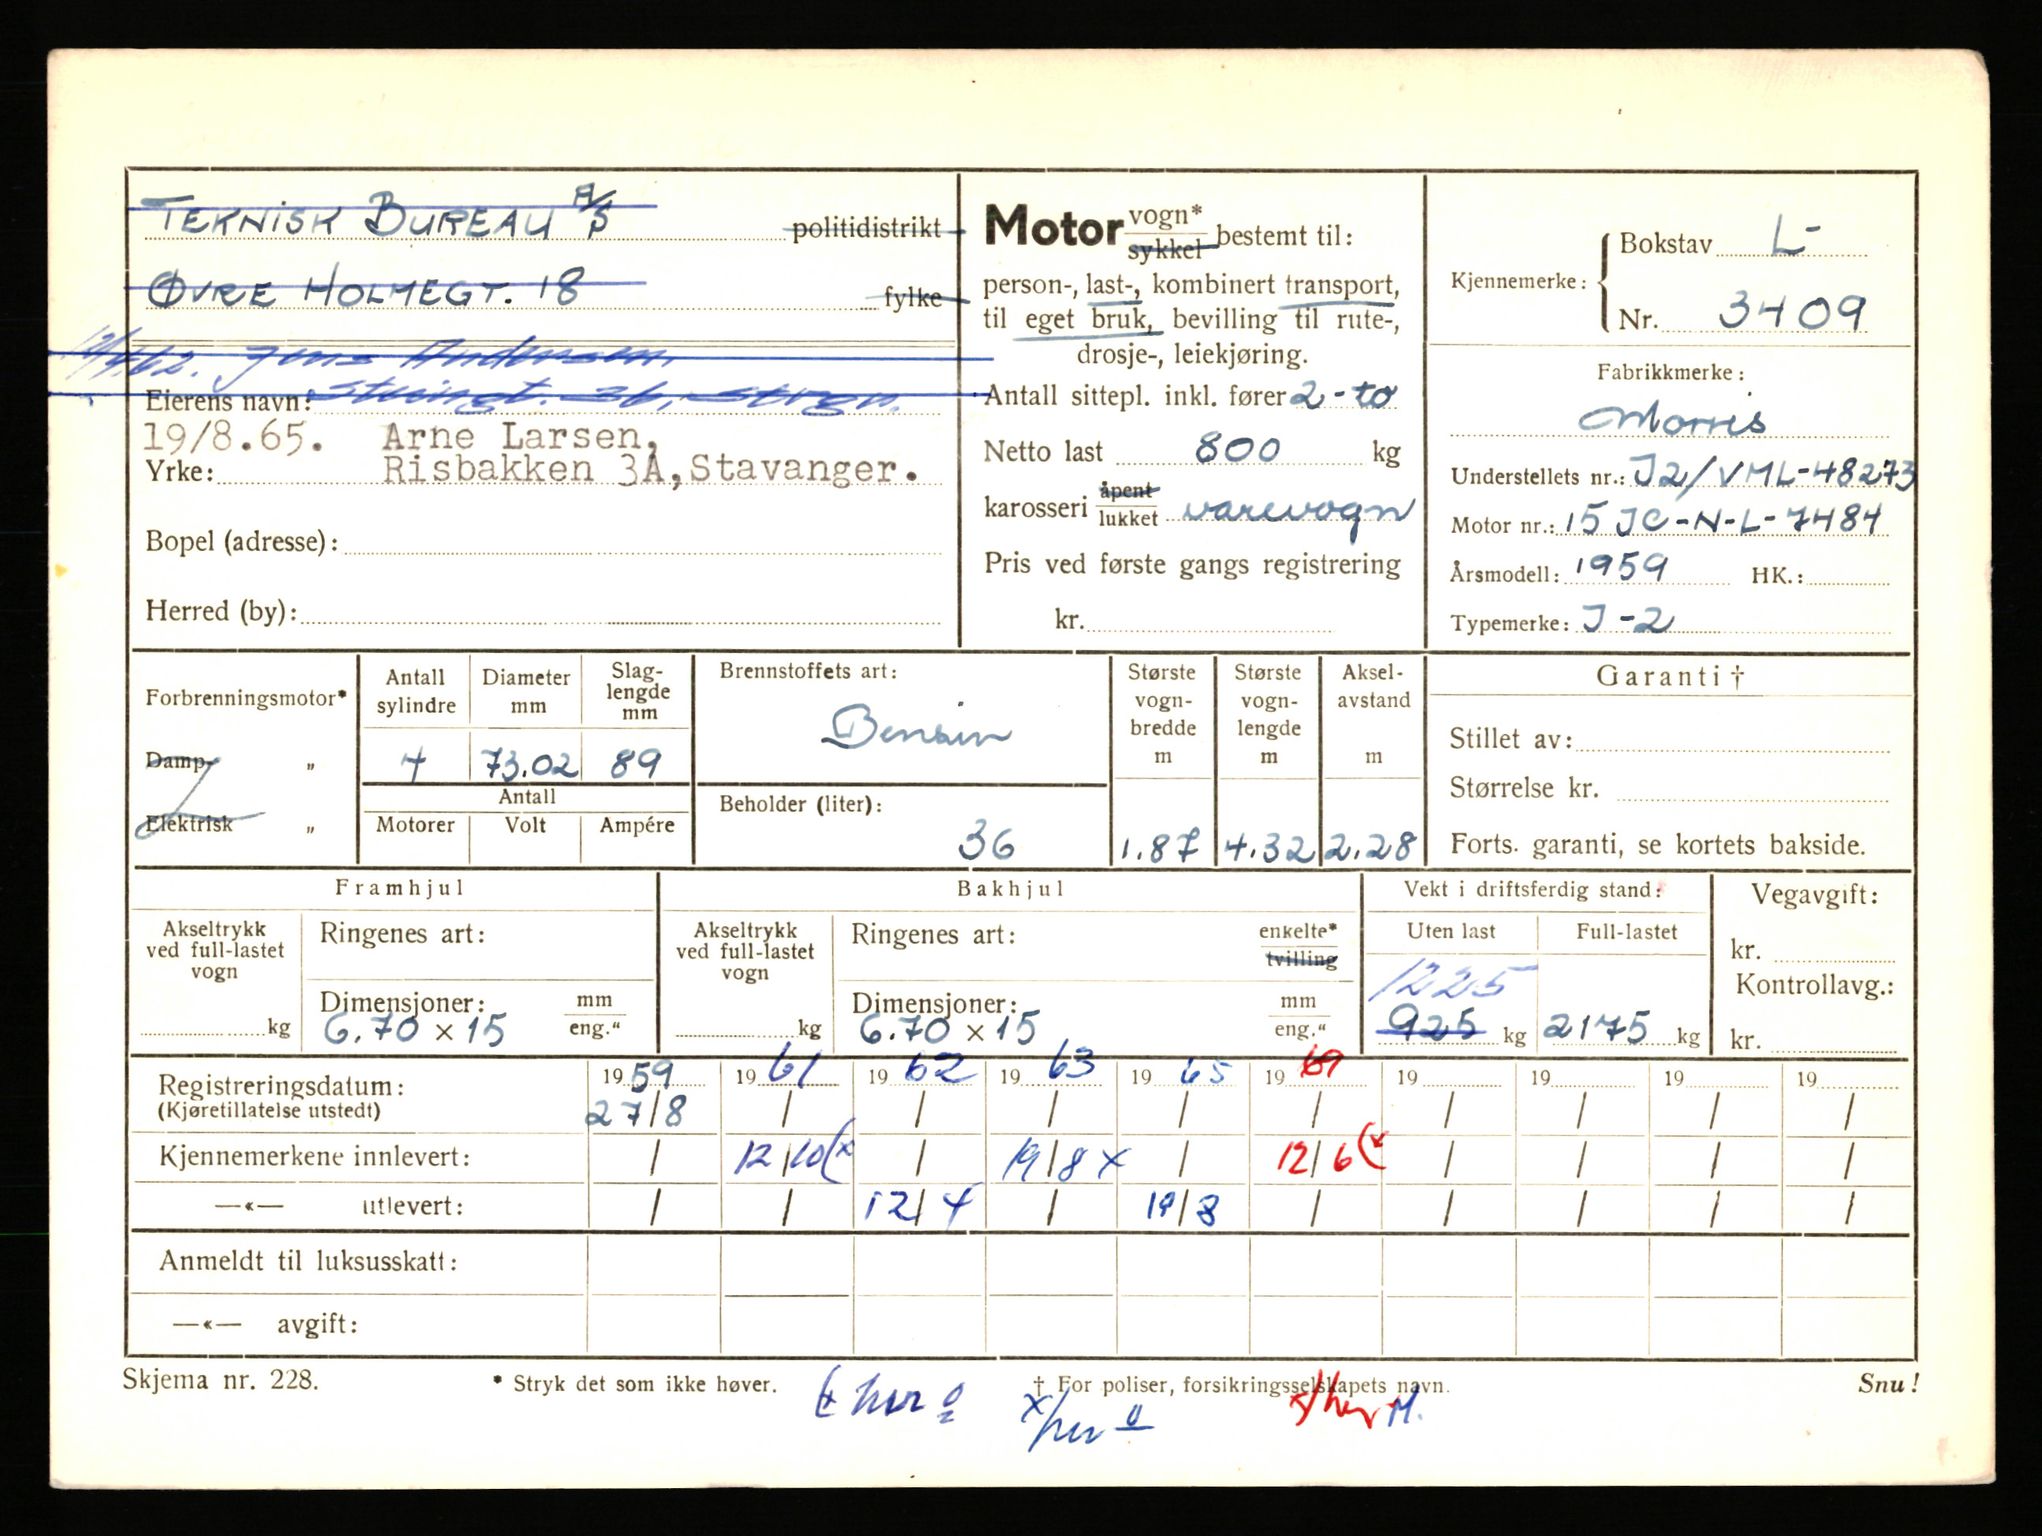 TEKNISK BUREAU A/S politidistrikt
ØVRE HOLMEGT. 18 fylke
12/4.62. Jens Andersen
Eierens navn: Steingt. 36, Stvgr.
19/8.65. Arne Larsen,
Yrke: Risbakken 3A, Stavanger.
Bopel (adresse):
Herred (by):
Motor vogn* sykkel bestemt til:
person-, last-, kombinert transport,
til eget bruk, bevilling til rute-,
drosje-, leiekjøring.
Antall sittepl. inkl. fører 2-to
Netto last 800 kg
karosseri åpent lukket varevogn
Pris ved første gangs registrering
kr.
Kjennemerke: Bokstav L-
Nr. 3409
Fabrikkmerke:
Morris
Understellets nr.: J2/VML-48273
Motor nr.: 15 JC-N-L-7484
Årsmodell: 1959 HK.:
Typemerke: J-2
Forbrenningsmotor*
Damp- „
Elektrisk „
Antall sylindre Diameter mm Slag-lengde mm
4 73.02 89
Antall
Motorer Volt Ampére
Brennstoffets art:
Bensin
Beholder (liter):
36
Største vogn-bredde m Største vogn-lengde m Aksel-avstand m
1.87 4.32 2.28
Garanti †
Stillet av:
Størrelse kr.
Forts. garanti, se kortets bakside.
Framhjul
Akseltrykk ved full-lastet vogn
kg
Ringenes art:
Dimensjoner: mm eng."
6.70 x 15
Bakhjul
Akseltrykk ved full-lastet vogn
kg
Ringenes art: enkelte* tvilling
Dimensjoner: mm eng."
6.70 x 15
Vekt i driftsferdig stand:
Uten last Full-lastet
1225
925 kg 2175 kg
Vegavgift:
kr.
Kontrollavg.:
kr.
Registreringsdatum: 1959 1961 1962 1963 1965 1969 19 19 19 19
(Kjøretillatelse utstedt) 27/8 / / / / / / / / /
Kjennemerkene innlevert: / 12/10 (x / 19/8 x / 12/6 (x / / / /
—«— utlevert: / / 12/4 / 19/8 / / / / /
Anmeldt til luksusskatt:
—«— avgift:
Skjema nr. 228. * Stryk det som ikke høver. † For poliser, forsikringsselskapets navn. Snu!